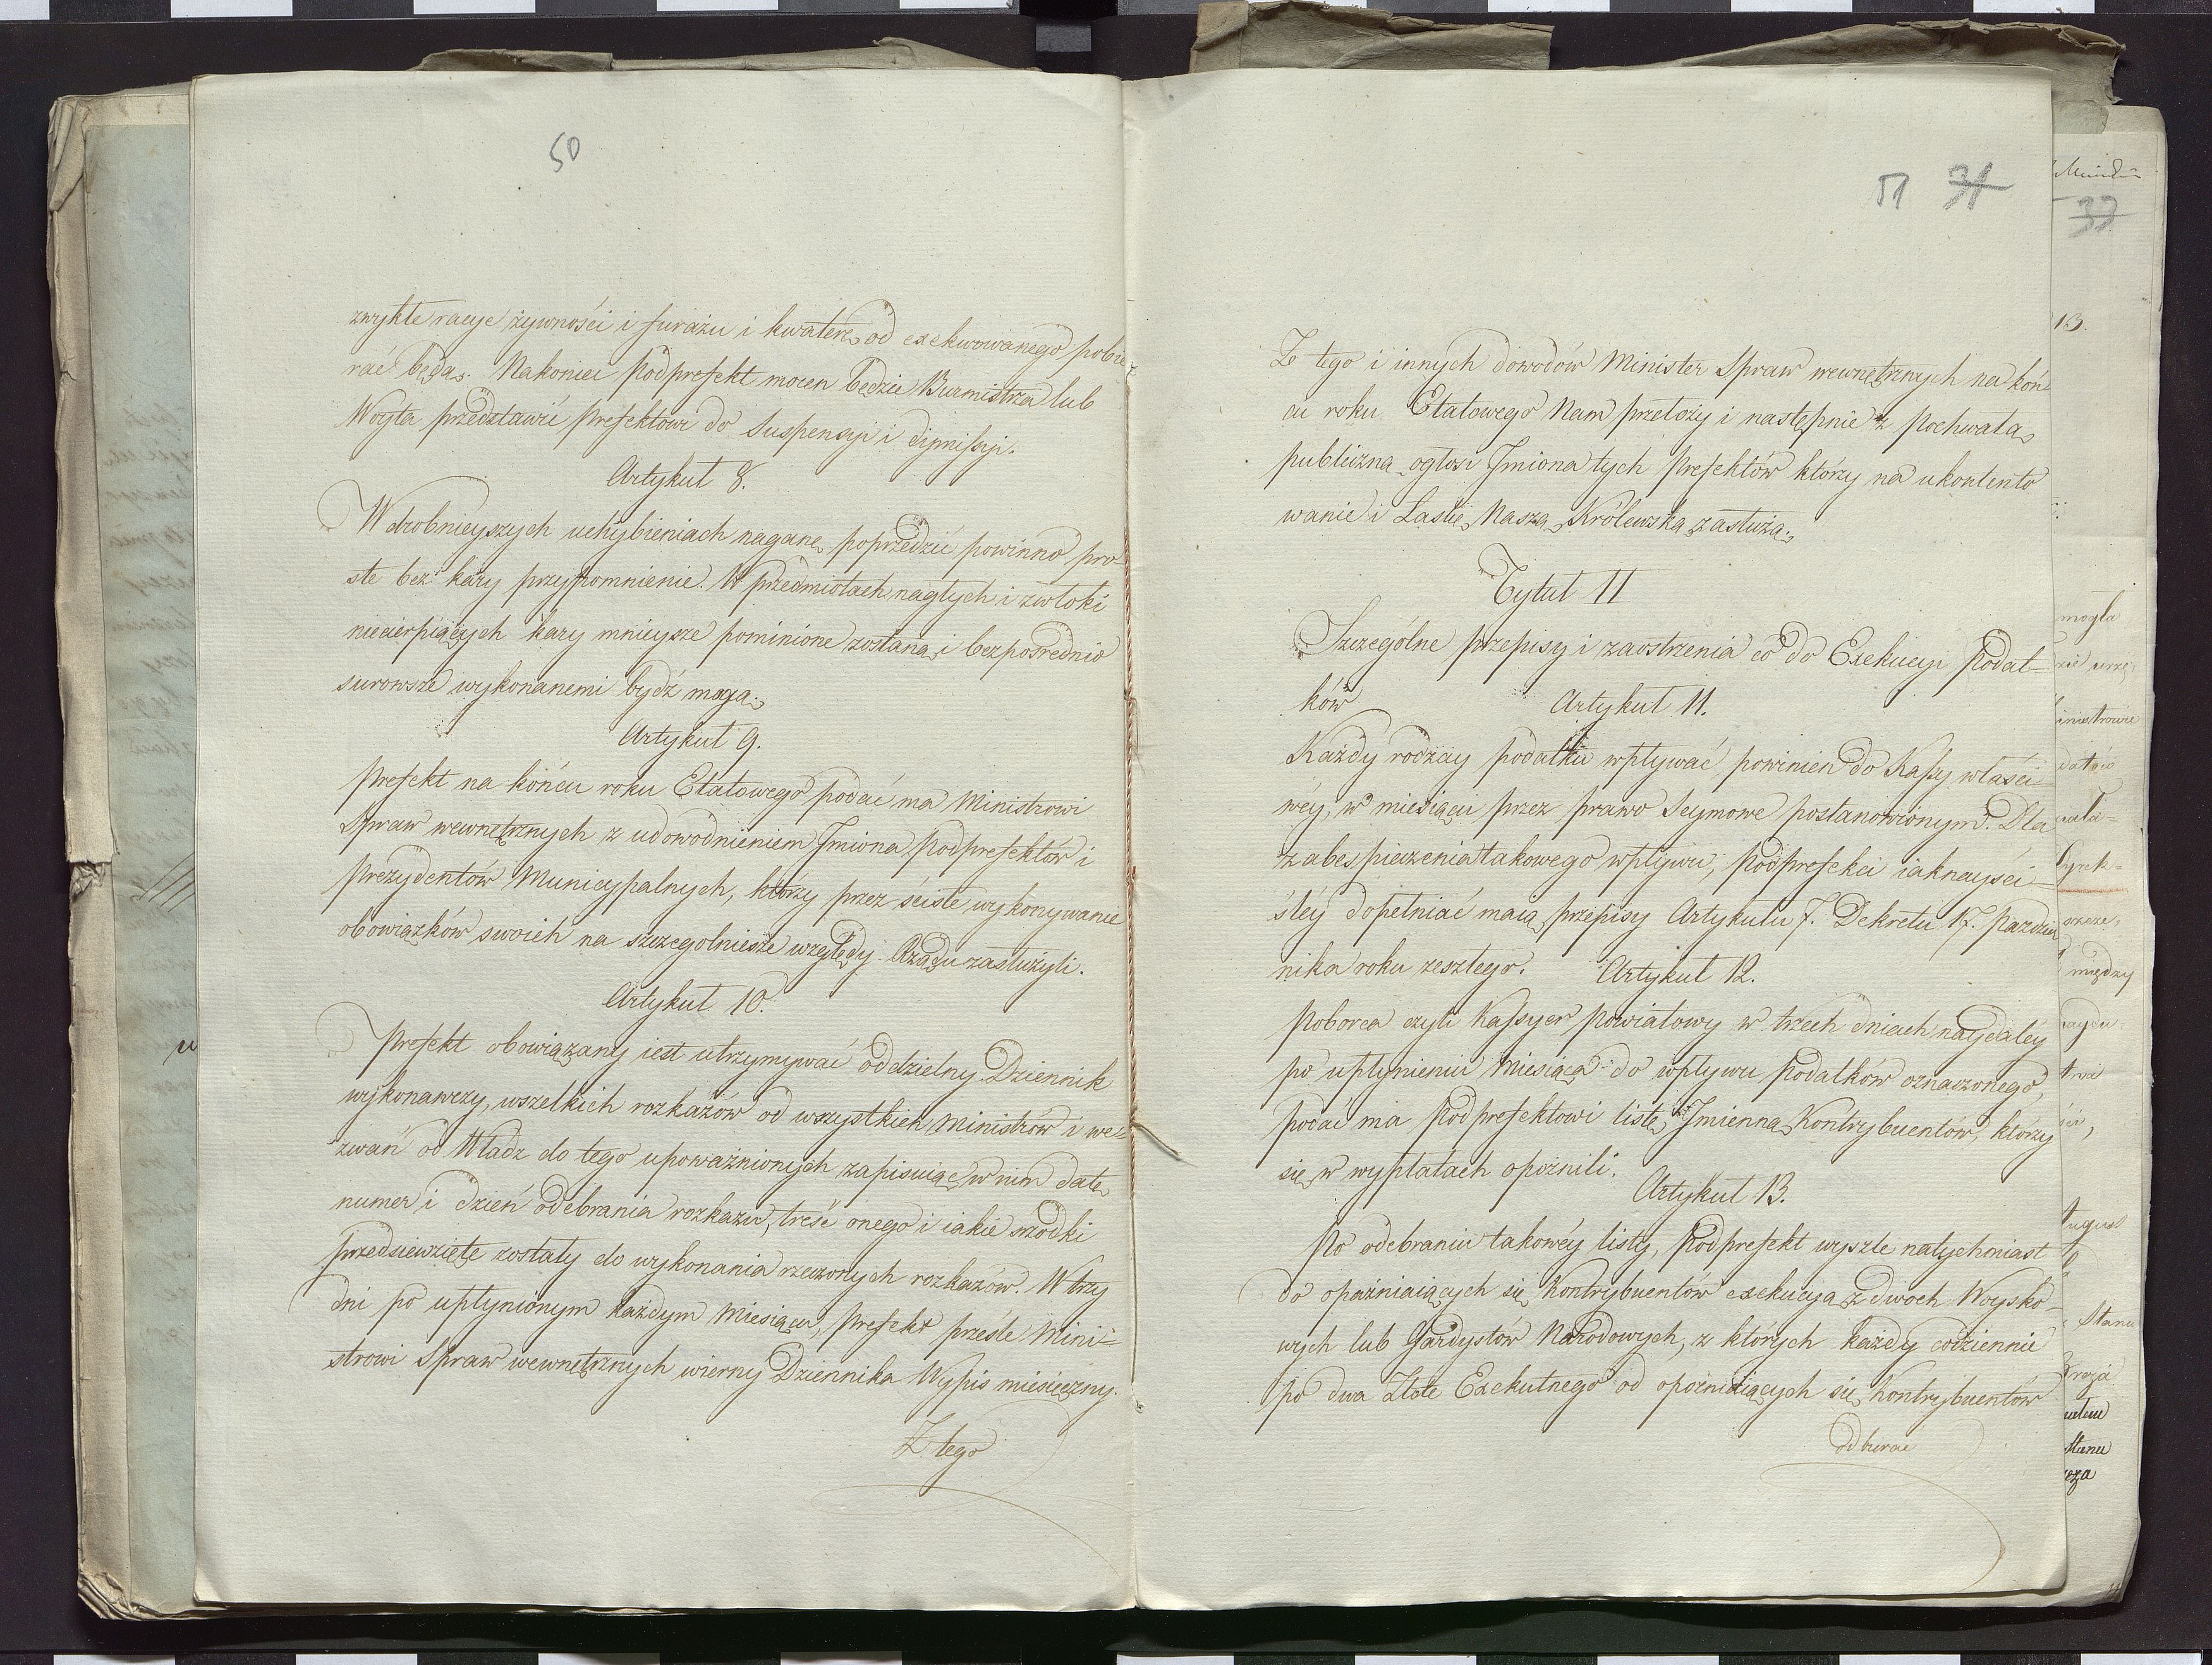 50
zwykłe racye żywności i furażu i kwaterę od exekwowanego pobie
rać będą. Nakoniec Podprefekt mocen będzie Burmistrza lub
Woyta przedstawić Prefektowi do Suspensyi i dymissyi.
Artykuł 8.
W drobnieyszych uchybieniach naganę poprzedzić powinno pro-
ste bez kary przypomnienie. W przedmiotach nagłych i zwłoki
niecierpiących kary mnieysze pominione zostaną i bezpośrednio
surowsze wykonanemi bydź mogą.
Artykuł 9.
Prefekt na końcu roku Etatowego podać ma Ministrowi
Spraw wewnętrznych z udowodnieniem Jmiona Podprefektów i
Prezydentów Municypalnych, którzy przez ścisłe wykonywanie
obowiązków swoich na szczegolniesze względy Rządu zasłużyli.
Artykuł 10.
Prefekt obowiązany iest utrzymywać oddzielny Dziennik
wykonawczy, wszelkich rozkazów od wszystkich Ministrów i we-
zwań od Władz do tego upoważnionych zapisuiąc w nim datę
numer i dzień odebrania rozkazu, treść onego i iakie srzodki
przedsiewzięte zostały do wykonania rzeczonych rozkazów. W trzy
dni po upłynionym każdym Miesiącu, Prefekt prześle Mini-
strowi Spraw wewnętrznych wierny Dziennika Wypis miesięczny.
Z tego
51 31
Z tego i innych dowodów Minister Spraw wewnętrznych na koń
cu roku Etatowego Nam przełoży i następnie z Pochwałą
publiczną ogłosi Jmiona tych Prefektów którzy na ukontento
wanie i Łaskę Naszą Królewską zasłużą.
Tytuł II
Szczególne przepisy i zaostrzenia co do Exekucyi Podat-
ków
Artykuł 11.
Każdy rodzay podatku wpływać powinien do Kassy właści-
wéy, w miesiącu przez prawo Seymowe postanowionym. Dla
zabespieczenia takowego wpływu, Podprefekci iaknayści-
śléy dopełniać maią przepisy Artykułu 7. Dekretu 17. Pazdzier
nika roku zeszłego.
Artykuł 12.
Poborca czyli Kassyer Powiatowy w trzech dniach naydaléy
po upłynieniu Miesiąca do wpływu Podatków oznaczonego,
podać ma Podprefektowi listę Jmienną Kontrybuentów, którzy
się w wypłatach opoźnili.
Artykuł 13.
Po odebraniu takowéy listy, Podprefekt wyszle natychmiast
do opaźniaiących się Kontrybuentów exekucyą z dwoch Woysko-
wych lub Gardystów Narodowych, z których każdy codziennie
po dwa Złote Exekutnego od opoźniaiących się Kontrybuentów
odbierac
33
13.
mogła
między
Stanu